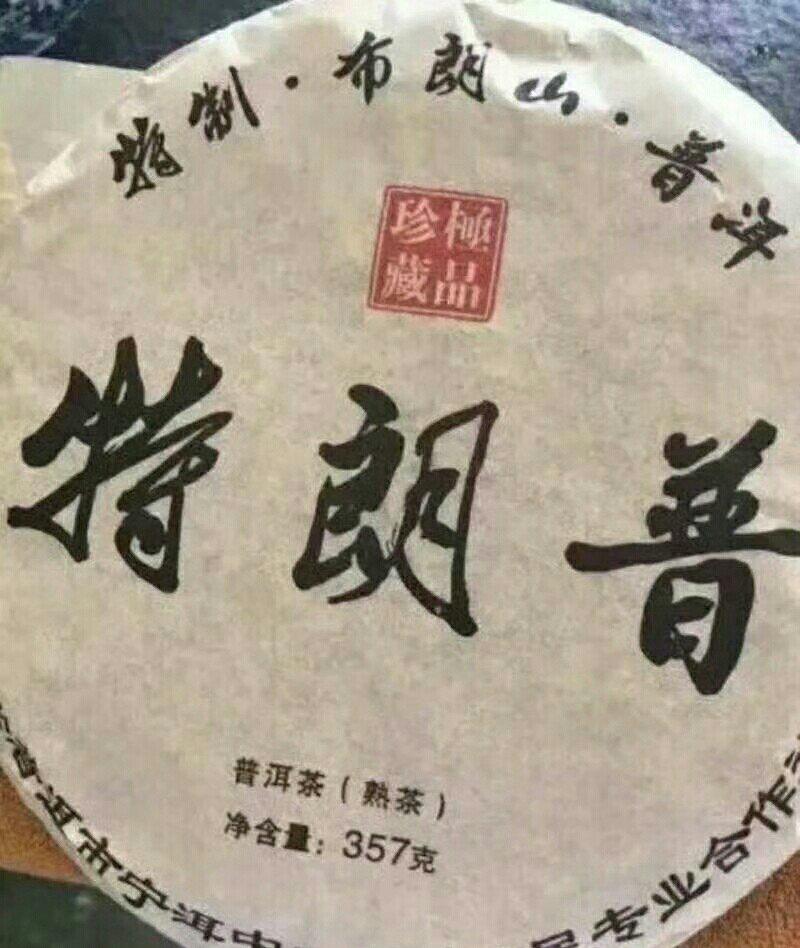 特制·布朗山·普洱
極品
珍藏
特朗普
普洱茶（熟茶）
净含量：357克
普洱市宁洱中
专业合作